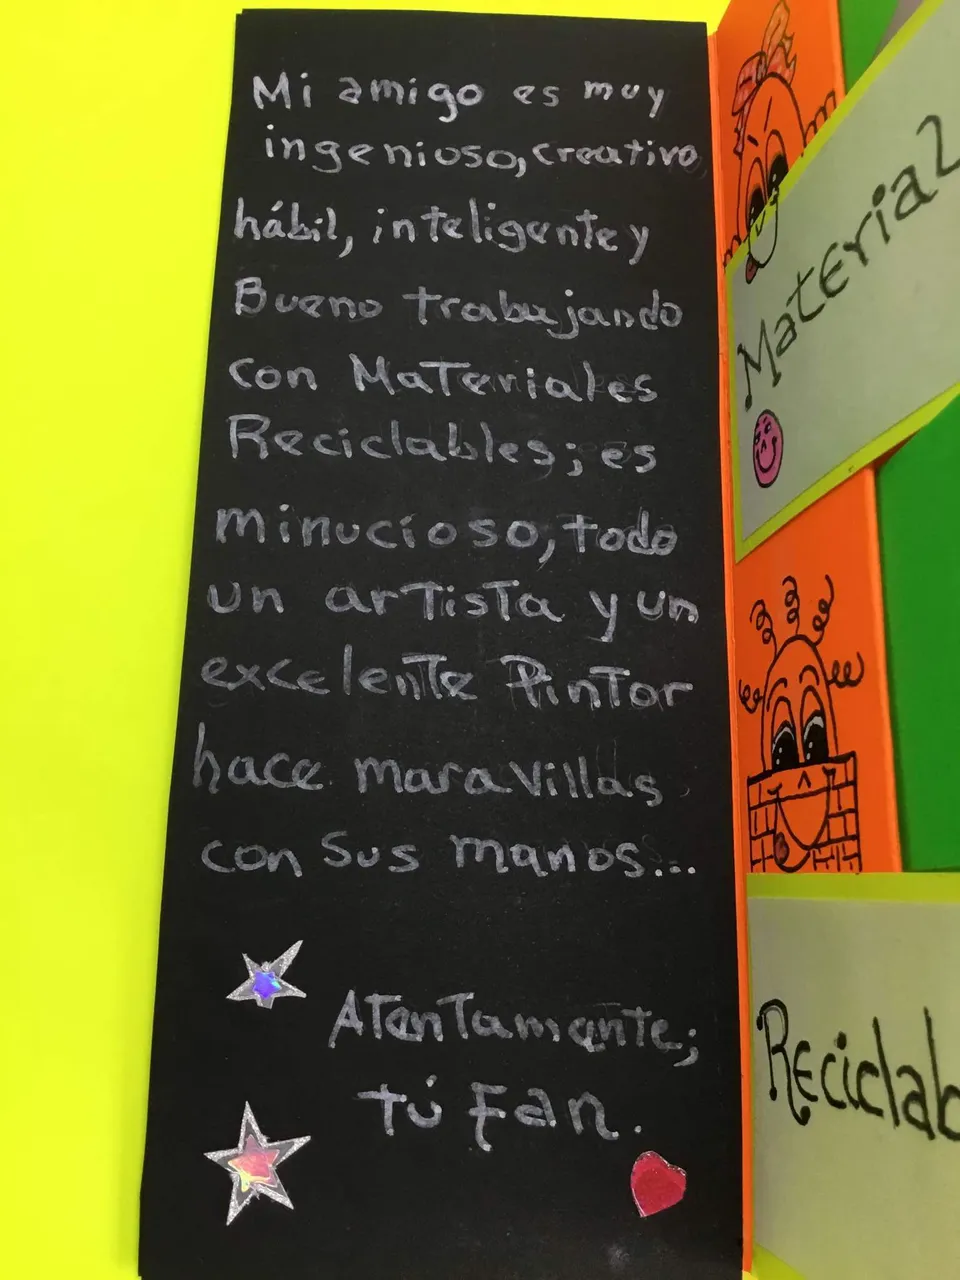 Mi amigo es muy
ingenioso, creativo,
hábil, inteligente y
Bueno trabajando
con Materiales
Reciclables; es
minucioso, todo
un artista y un
excelente Pintor
hace maravillas
con sus manos...
Atentamente;
tú Fan.
Material
Reciclab